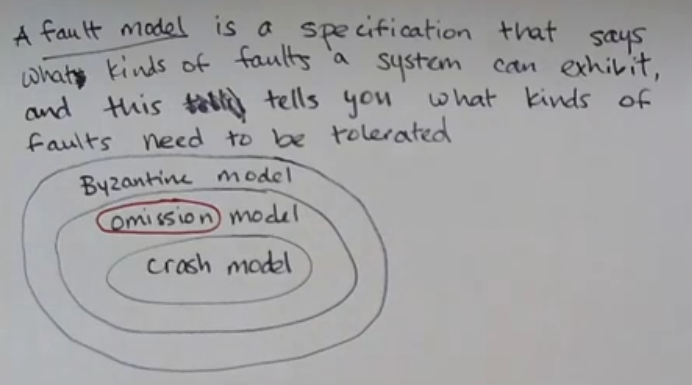 A fault model is a specification that says
what kinds of faults a system can exhibit,
and this tells you what kinds of
faults need to be tolerated
Byzantine model
omission model
crash model